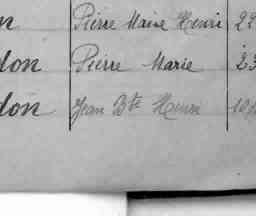 n Pierre Marie Henri 22
don Pierre Marie 23
don Jean Bte Henri 10